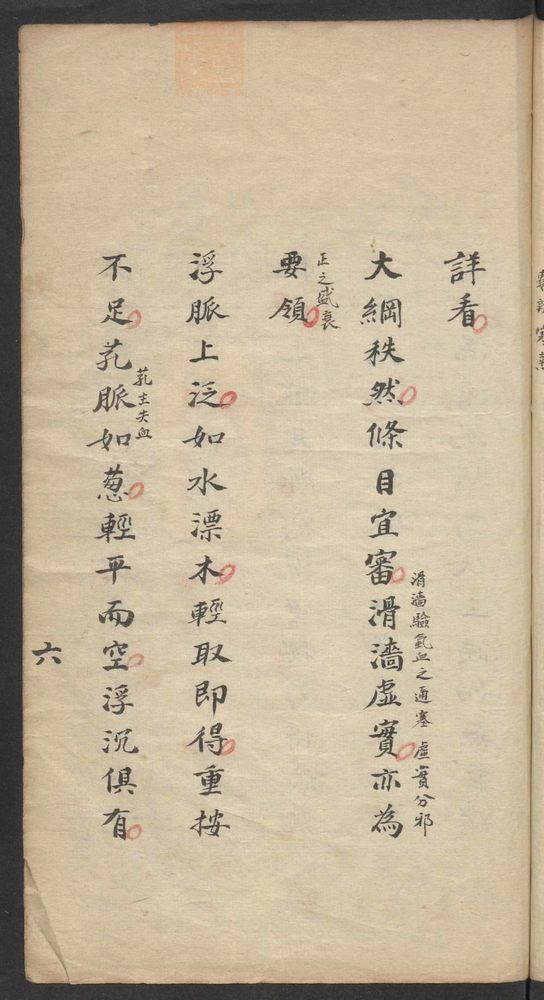 詳看
滑濇驗氣血之通塞 虛實分邪
大綱秩然條目宜審滑濇虛實亦為
正之盛衰
要領
浮脈上泛如水漂木輕取即得重按
芤主失血
不足芤脈如葱輕平而空浮沉俱有
六